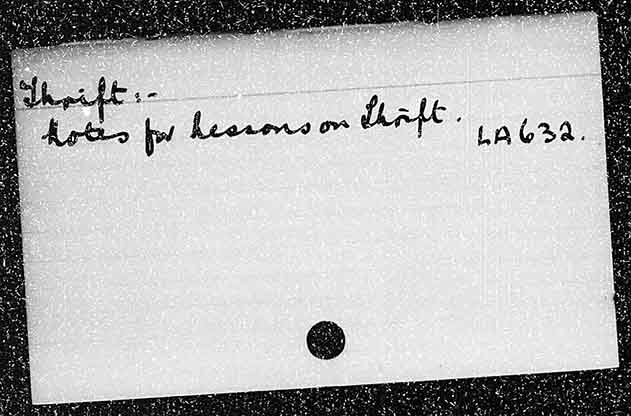 Thrift :-
Notes for Lessons on Thrift. LA632.